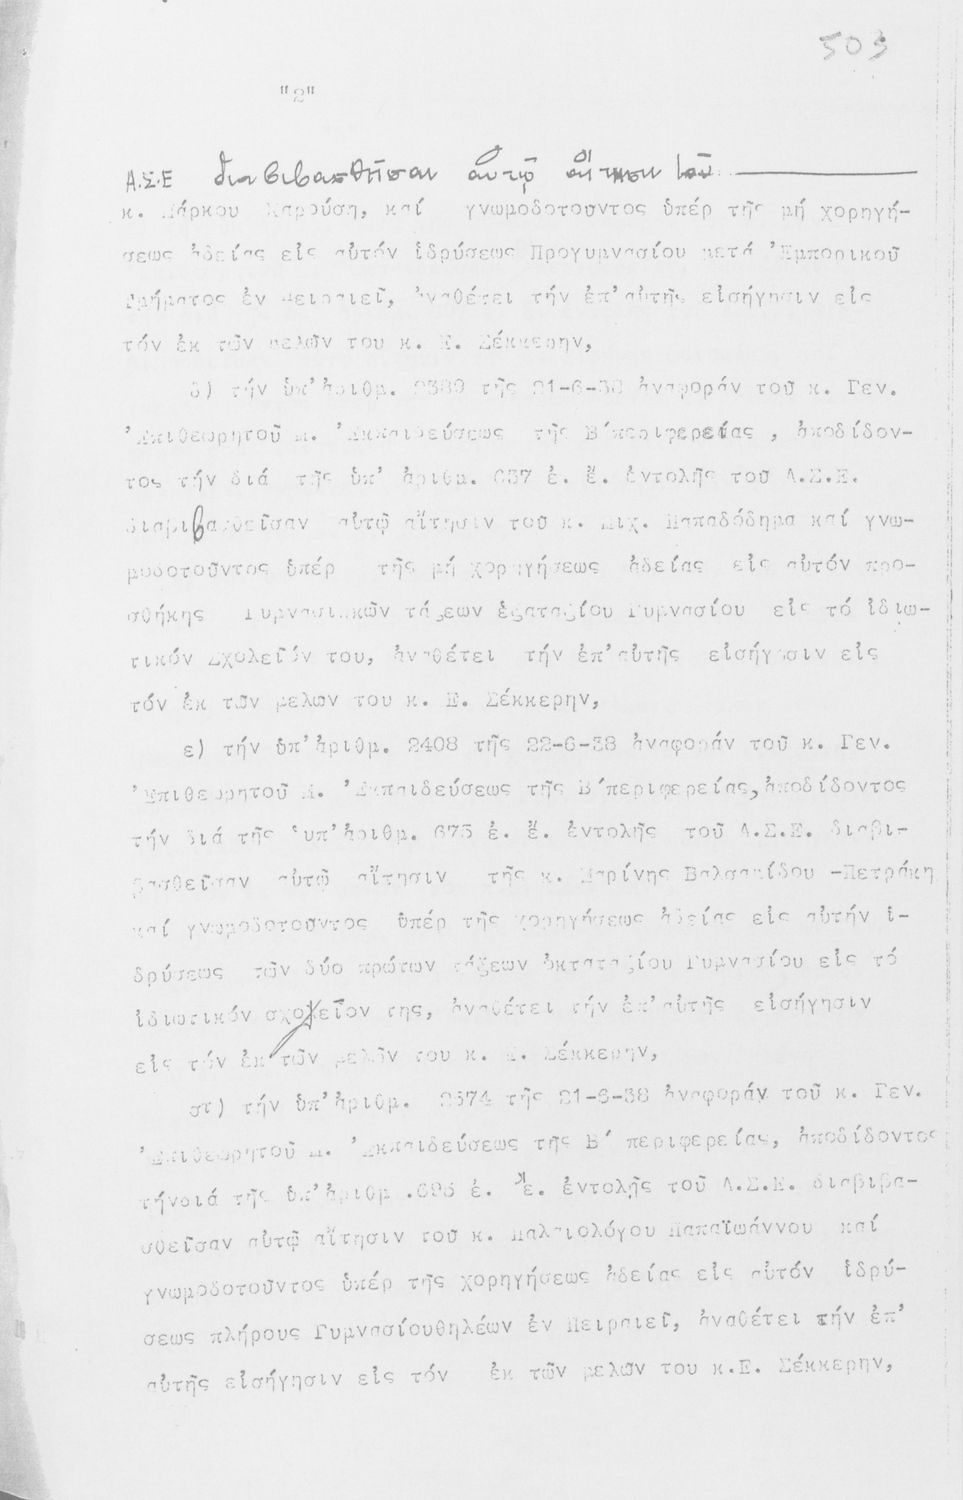 503
"2"
Α.Σ.Ε διαβιβασθεῖσαν αὐτῷ αἴτησιν τοῦ
κ. Μάρκου Καρούση, καί γνωμοδοτουντος ὑπέρ τῆς μή χορηγή-
σεως ἀδείας εἰς αὐτόν ἱδρύσεως Προγυμνασίου μετά Ἐμπορικοῦ
Τμήματος ἐν Πειραιεῖ, ἀναθέτει τήν ἐπ' αὐτῆς εἰσήγησιν εἰς
τόν ἐκ τῶν μελῶν του κ. Ε. Σέκκερην,
δ) τήν ὑπ' ἀριθμ. 2389 τῆς 21-6-38 ἀναφοράν τοῦ κ. Γεν.
Ἐπιθεωρητοῦ Μ. Ἐκπαιδεύσεως τῆς Β΄περιφερείας , ἀποδίδον-
τος τήν διά τῆς ὑπ' ἀριθμ. 637 ἐ. ἔ. ἐντολῆς τοῦ Α.Σ.Ε.
διαβιβασθεῖσαν αὐτῷ αἴτησιν τοῦ κ. Μιχ. Παπαδόδημα καί γνω-
μοδοτοῦντος ὑπέρ τῆς μή χορηγήσεως ἀδείας εἰς αὐτόν προ-
σθήκης Γυμνασιακῶν τάξεων ἑξαταξίου Γυμνασίου εἰς τό ἰδιω-
τικόν Σχολεῖόν του, ἀναθέτει τήν ἐπ' αὐτῆς εἰσήγησιν εἰς
τόν ἐκ τῶν μελων του κ. Ε. Σέκκερην,
ε) τήν ὑπ' ἀριθμ. 2408 τῆς 22-6-38 ἀναφοράν τοῦ κ. Γεν.
Ἐπιθεωρητοῦ Μ. Ἐκπαιδεύσεως τῆς Β΄περιφερείας, ἀποδίδοντος
τήν διά τῆς ὑπ' ἀριθμ. 675 ἐ. ἔ. ἐντολῆς τοῦ Α.Σ.Ε. διαβι-
βασθεῖσαν αὐτῷ αἴτησιν τῆς κ. Μαρίνης Βαλσαμίδου -Πετράκη
καί γνωμοδοτοῦντος ὑπέρ τῆς χορηγήσεως ἀδείας εἰς αὐτήν ἱ-
δρύσεως τῶν δύο πρώτων τάξεων ὀκταταξίου Γυμνασίου εἰς τό
ἰδιωτικόν σχολεῖον της, ἀναθέτει τήν ἐπ' αὐτῆς εἰσήγησιν
εἰς τόν ἐκ τῶν μελῶν του κ. Ε. Σέκκερην,
στ) τήν ὑπ' ἀριθμ. 2374 τῆς 21-6-38 ἀναφοράν τοῦ κ. Γεν.
Ἐπιθεωρητοῦ Μ. Ἐκπαιδεύσεως τῆς Β΄ περιφερείας, ἀποδίδοντος
τήνδιά τῆς ὑπ' ἀριθμ .695 ἐ. ἔ. ἐντολῆς τοῦ Α.Σ.Ε. διαβιβα-
σθεῖσαν αὐτῷ αἴτησιν τοῦ κ. Παλαιολόγου Παπαϊωάννου καί
γνωμοδοτοῦντος ὑπέρ τῆς χορηγήσεως ἀδείας εἰς αὐτόν ἱδρύ-
σεως πλήρους Γυμνασίουθηλέων ἐν Πειραιεῖ, ἀναθέτει τήν ἐπ'
αὐτῆς εἰσήγησιν εἰς τόν ἐκ τῶν μελων του κ.Ε. Σέκκερην,